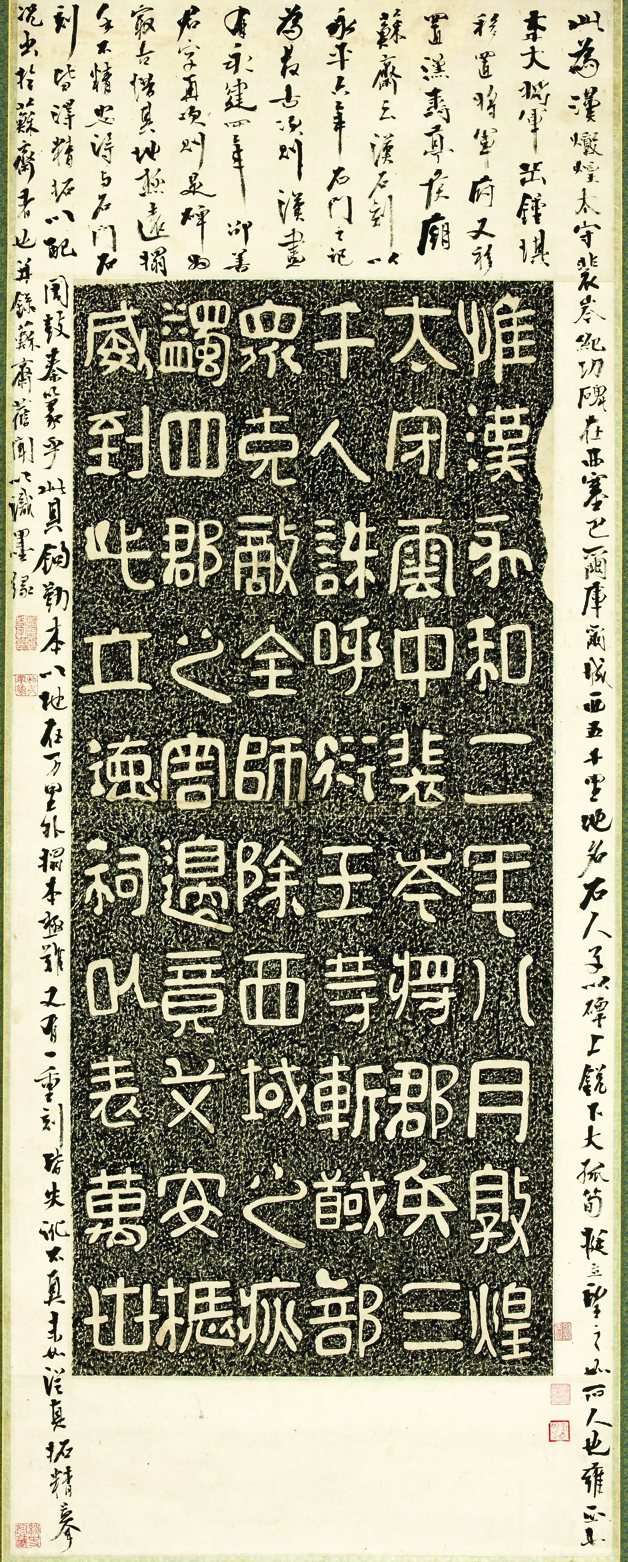 此為漢燉煌太守裴岑紀功碑在西塞巴爾庫爾城西五十里地名石人子以碑上銳下大孤筍挺立望之如石人也雍正年
大將軍岳鍾琪
移置將軍府又移
置漢壽亭侯廟
蘇齋云漢石刻以
永平六年石門之記
為最古次則漢畫
有永建四年邵善
君字再次則是碑為
最古惜其地極遠搨
手不精安得与石門石
刻皆得精拓以配
周鼓秦篆乎此真鉤勒本以地在万里外搨本極難又有一重刻皆失訛不真未如從真拓精摹
況出於蘇齋者也并錄蘇齋舊聞以識墨緣
惟漢永和二年八月敦煌
太守雲中裴岑將郡兵三
千人誅呼衍王等斬馘部
衆克敵全師除西域之疢
蠲四郡之害邊竟艾安振
威到此立德祠以表萬世